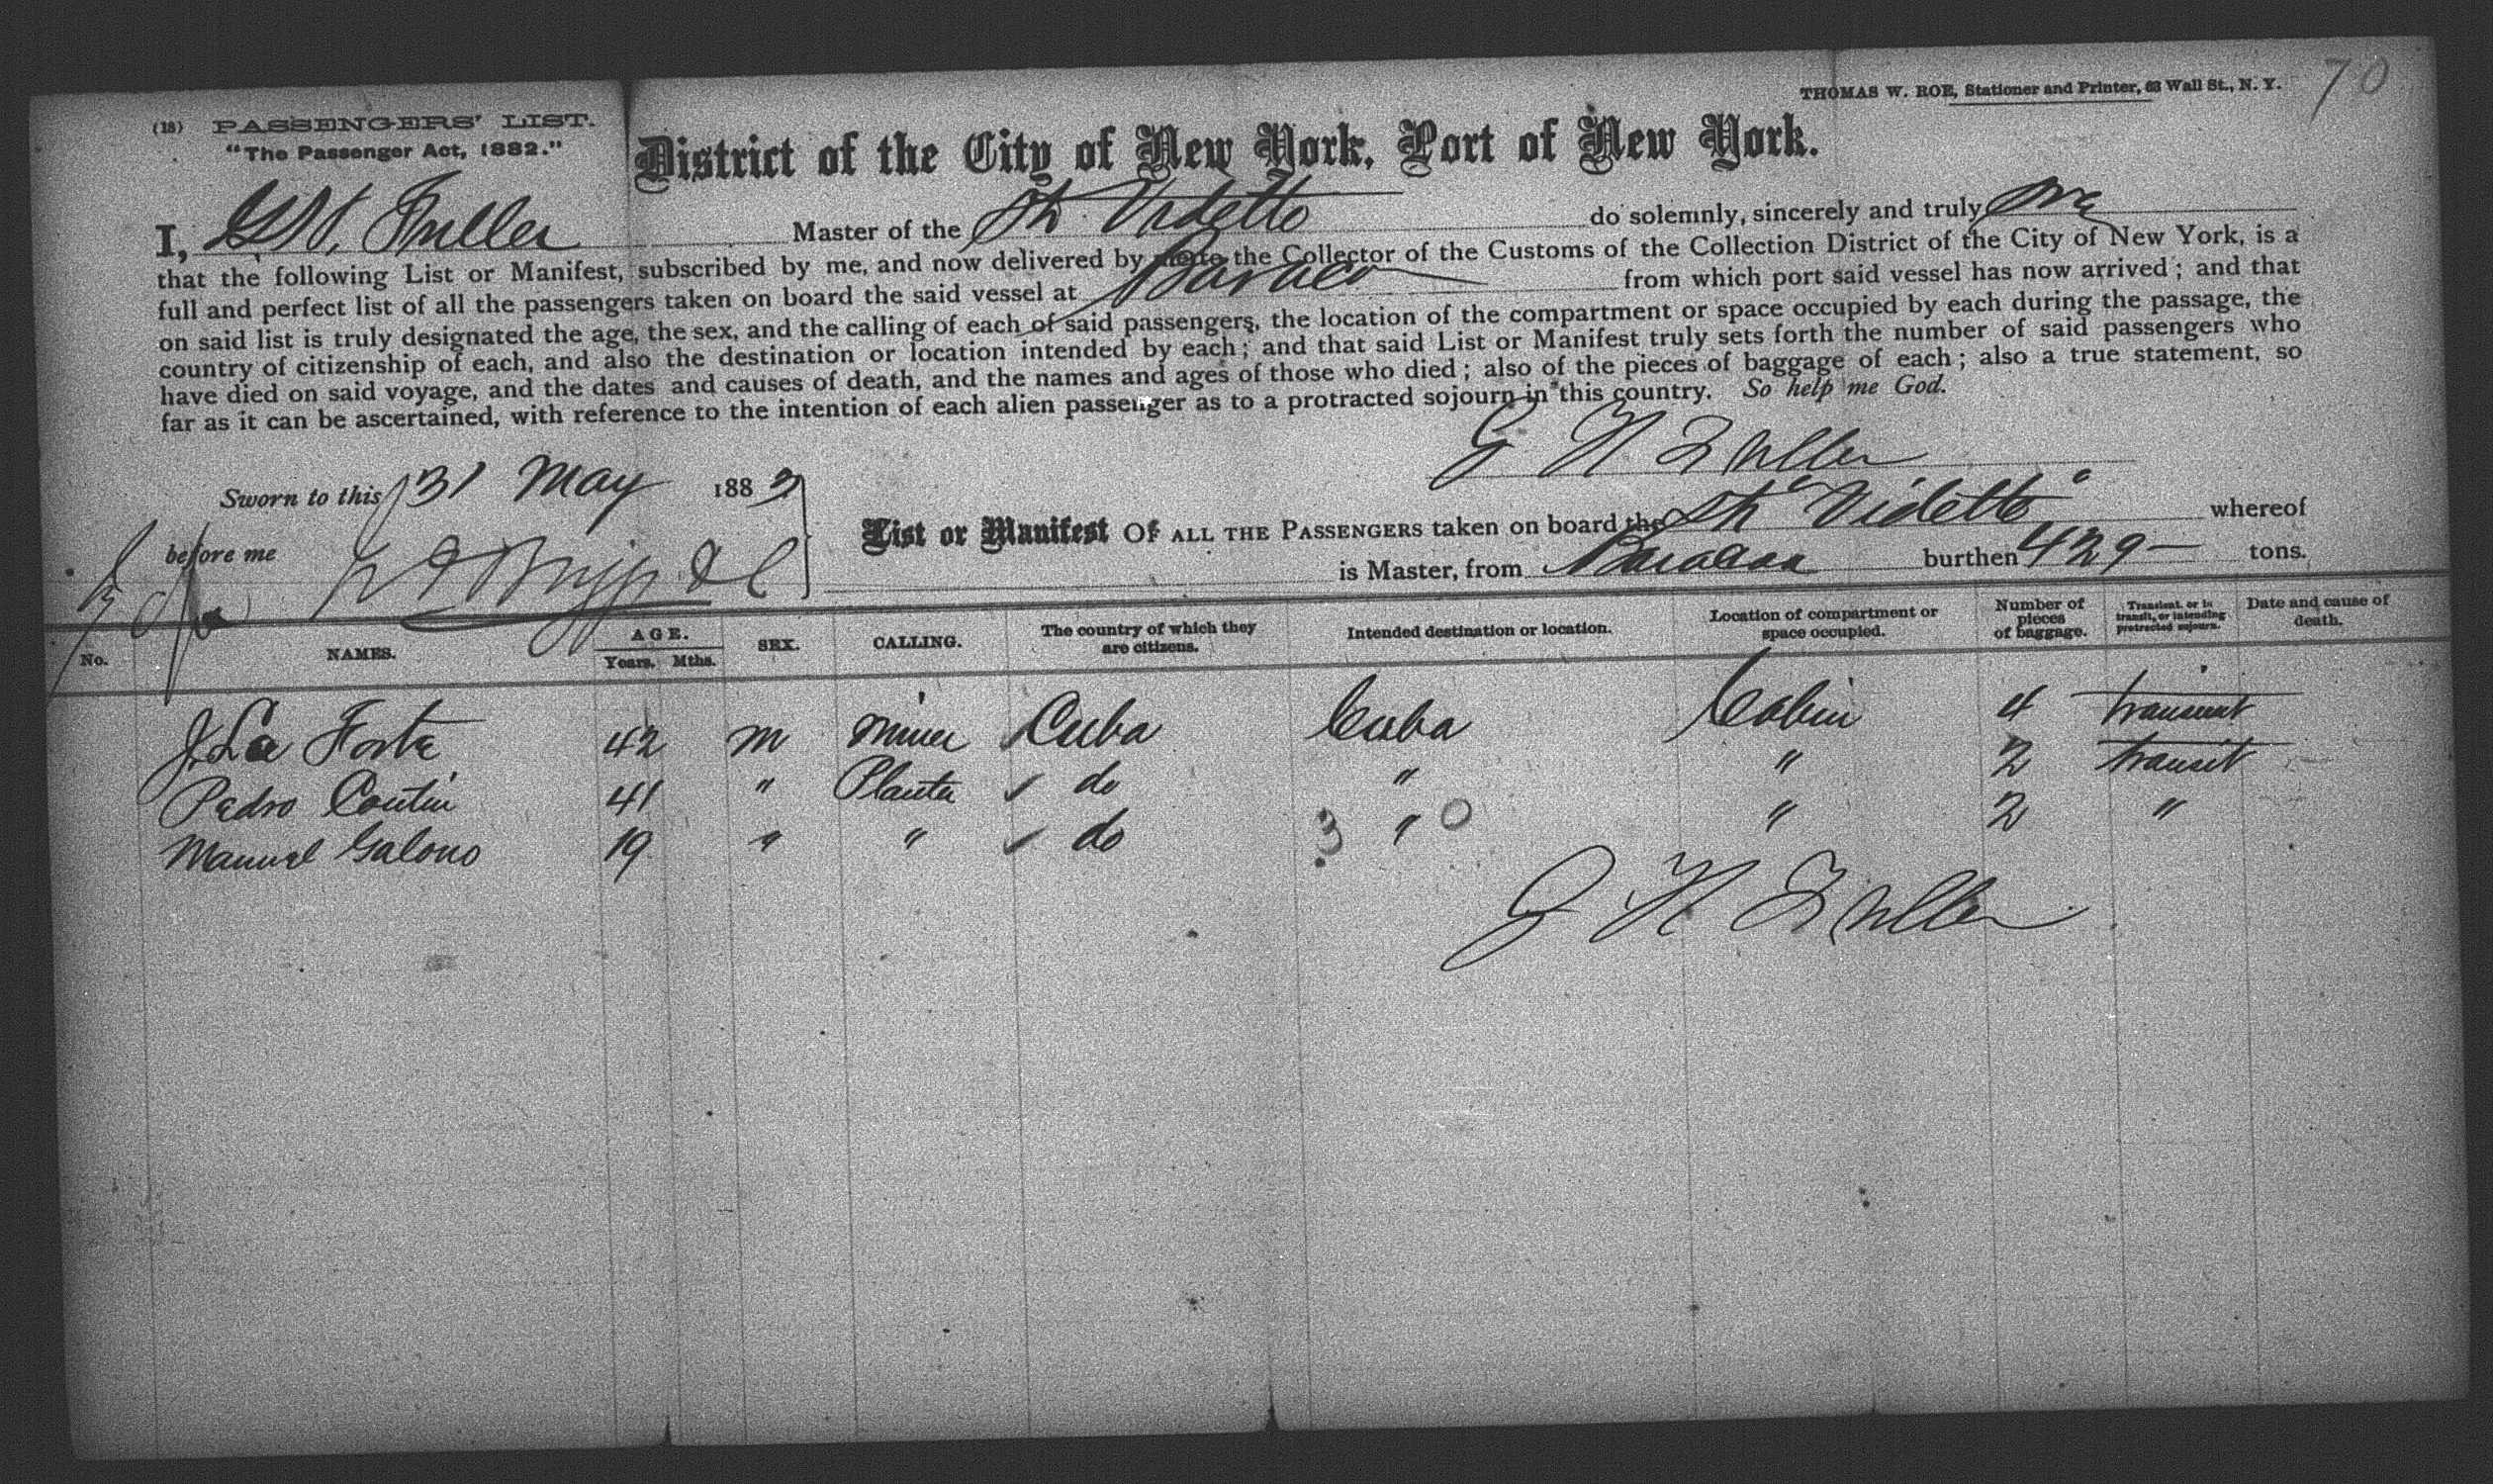 70
THOMAS W. ROE, Stationer and Printer, 63 Wall St., N. Y.
(18) PASSENGERS' LIST.
"The Passenger Act, 1882."
District of the City of New York, Port of New York.
I, G W Fuller Master of the Str Vidette do solemnly, sincerely and truly
that the following List or Manifest, subscribed by me, and now delivered by me to the Collector of the Customs of the Collection District of the City of New York, is a
full and perfect list of all the passengers taken on board the said vessel at Baraco from which port said vessel has now arrived; and that
on said list is truly designated the age, the sex, and the calling of each of said passengers, the location of the compartment or space occupied by each during the passage, the
country of citizenship of each, and also the destination or location intended by each; and that said List or Manifest truly sets forth the number of said passengers who
have died on said voyage, and the dates and causes of death, and the names and ages of those who died; also of the pieces of baggage of each; also a true statement, so
far as it can be ascertained, with reference to the intention of each alien passenger as to a protracted sojourn in this country. So help me God.
G W Fuller
Sworn to this 31 May 1883
before me
List or Manifest OF ALL THE PASSENGERS taken on board the Str "Vidette" whereof
is Master, from Baracoa burthen 429 — tons.
No. NAMES. AGE. Years. Mths. SEX. CALLING. The country of which they are citizens. Intended destination or location. Location of compartment or space occupied. Number of pieces of baggage. Transient, or in transit, or intending protracted sojourn. Date and cause of death.
J. La Forte 42 m miner Cuba Cuba Cabin 4 transient
Pedro Coutin 41 " Planter ✓ do " " 2 transit
Manuel Galono 19 " " ✓ do " " 2 "
3 0
G W Fuller